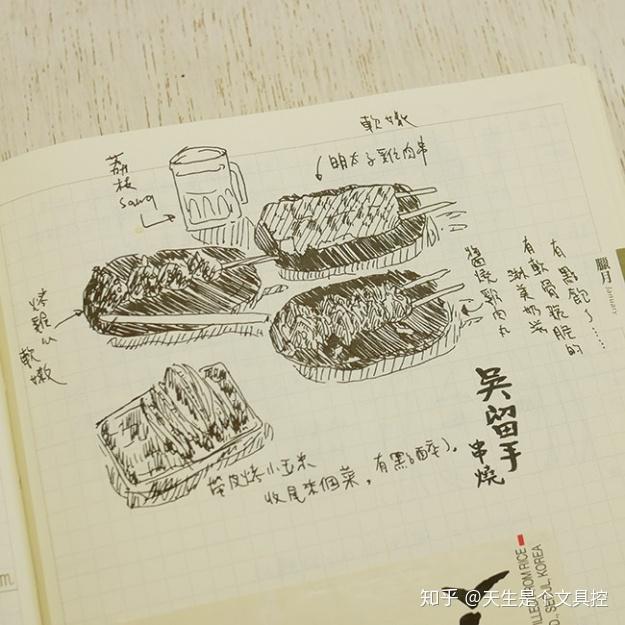 軟嫩
明太子雞肉串
荔
枝
sawa
醬燒雞肉丸
有點飽了……
有軟骨脆脆的
烤雞
軟
嫩
臘月
January
吳留手
串燒
帶皮烤小玉米
收尾來個菜，有點醉了。
FROM RICE
SEOUL KOREA
知乎 @天生是个文具控